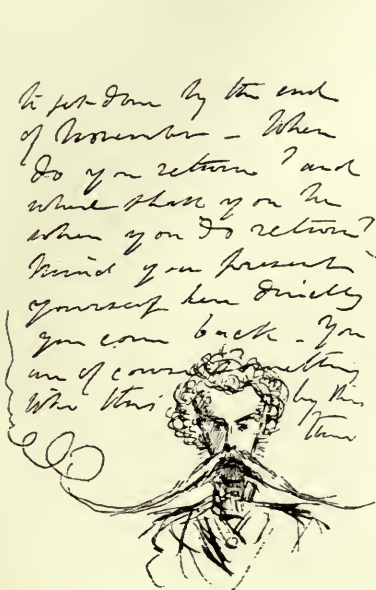 to get done by the end
of November – When
do you return? and
where shall you be
when you do return?
Mind you present
yourself here directly
you come back. You
are of course something
like this by this
time